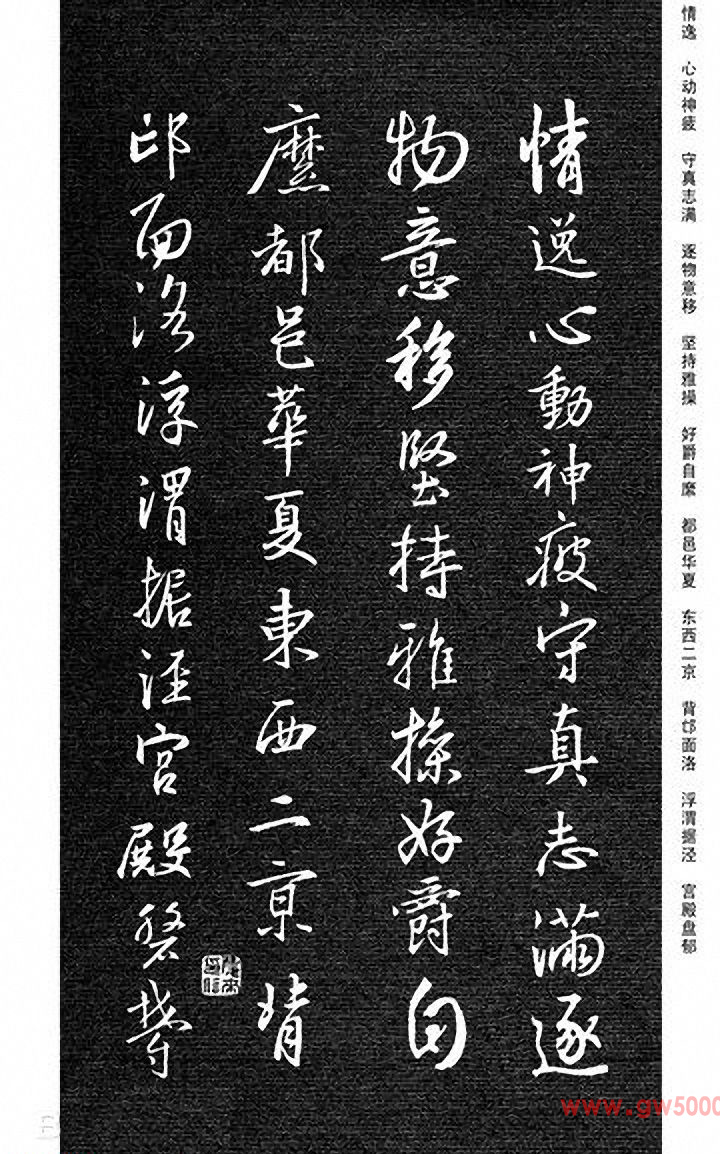 情逸心動神疲守真志滿逐
物意移堅持雅操好爵自
縻都邑華夏東西二京背
邙面洛浮渭据涇宮殿磐鬱
情逸 心动神疲 守真志满 逐物意移 坚持雅操 好爵自縻 都邑华夏 东西二京 背邙面洛 浮渭据泾 宫殿盘郁
www.gw5000